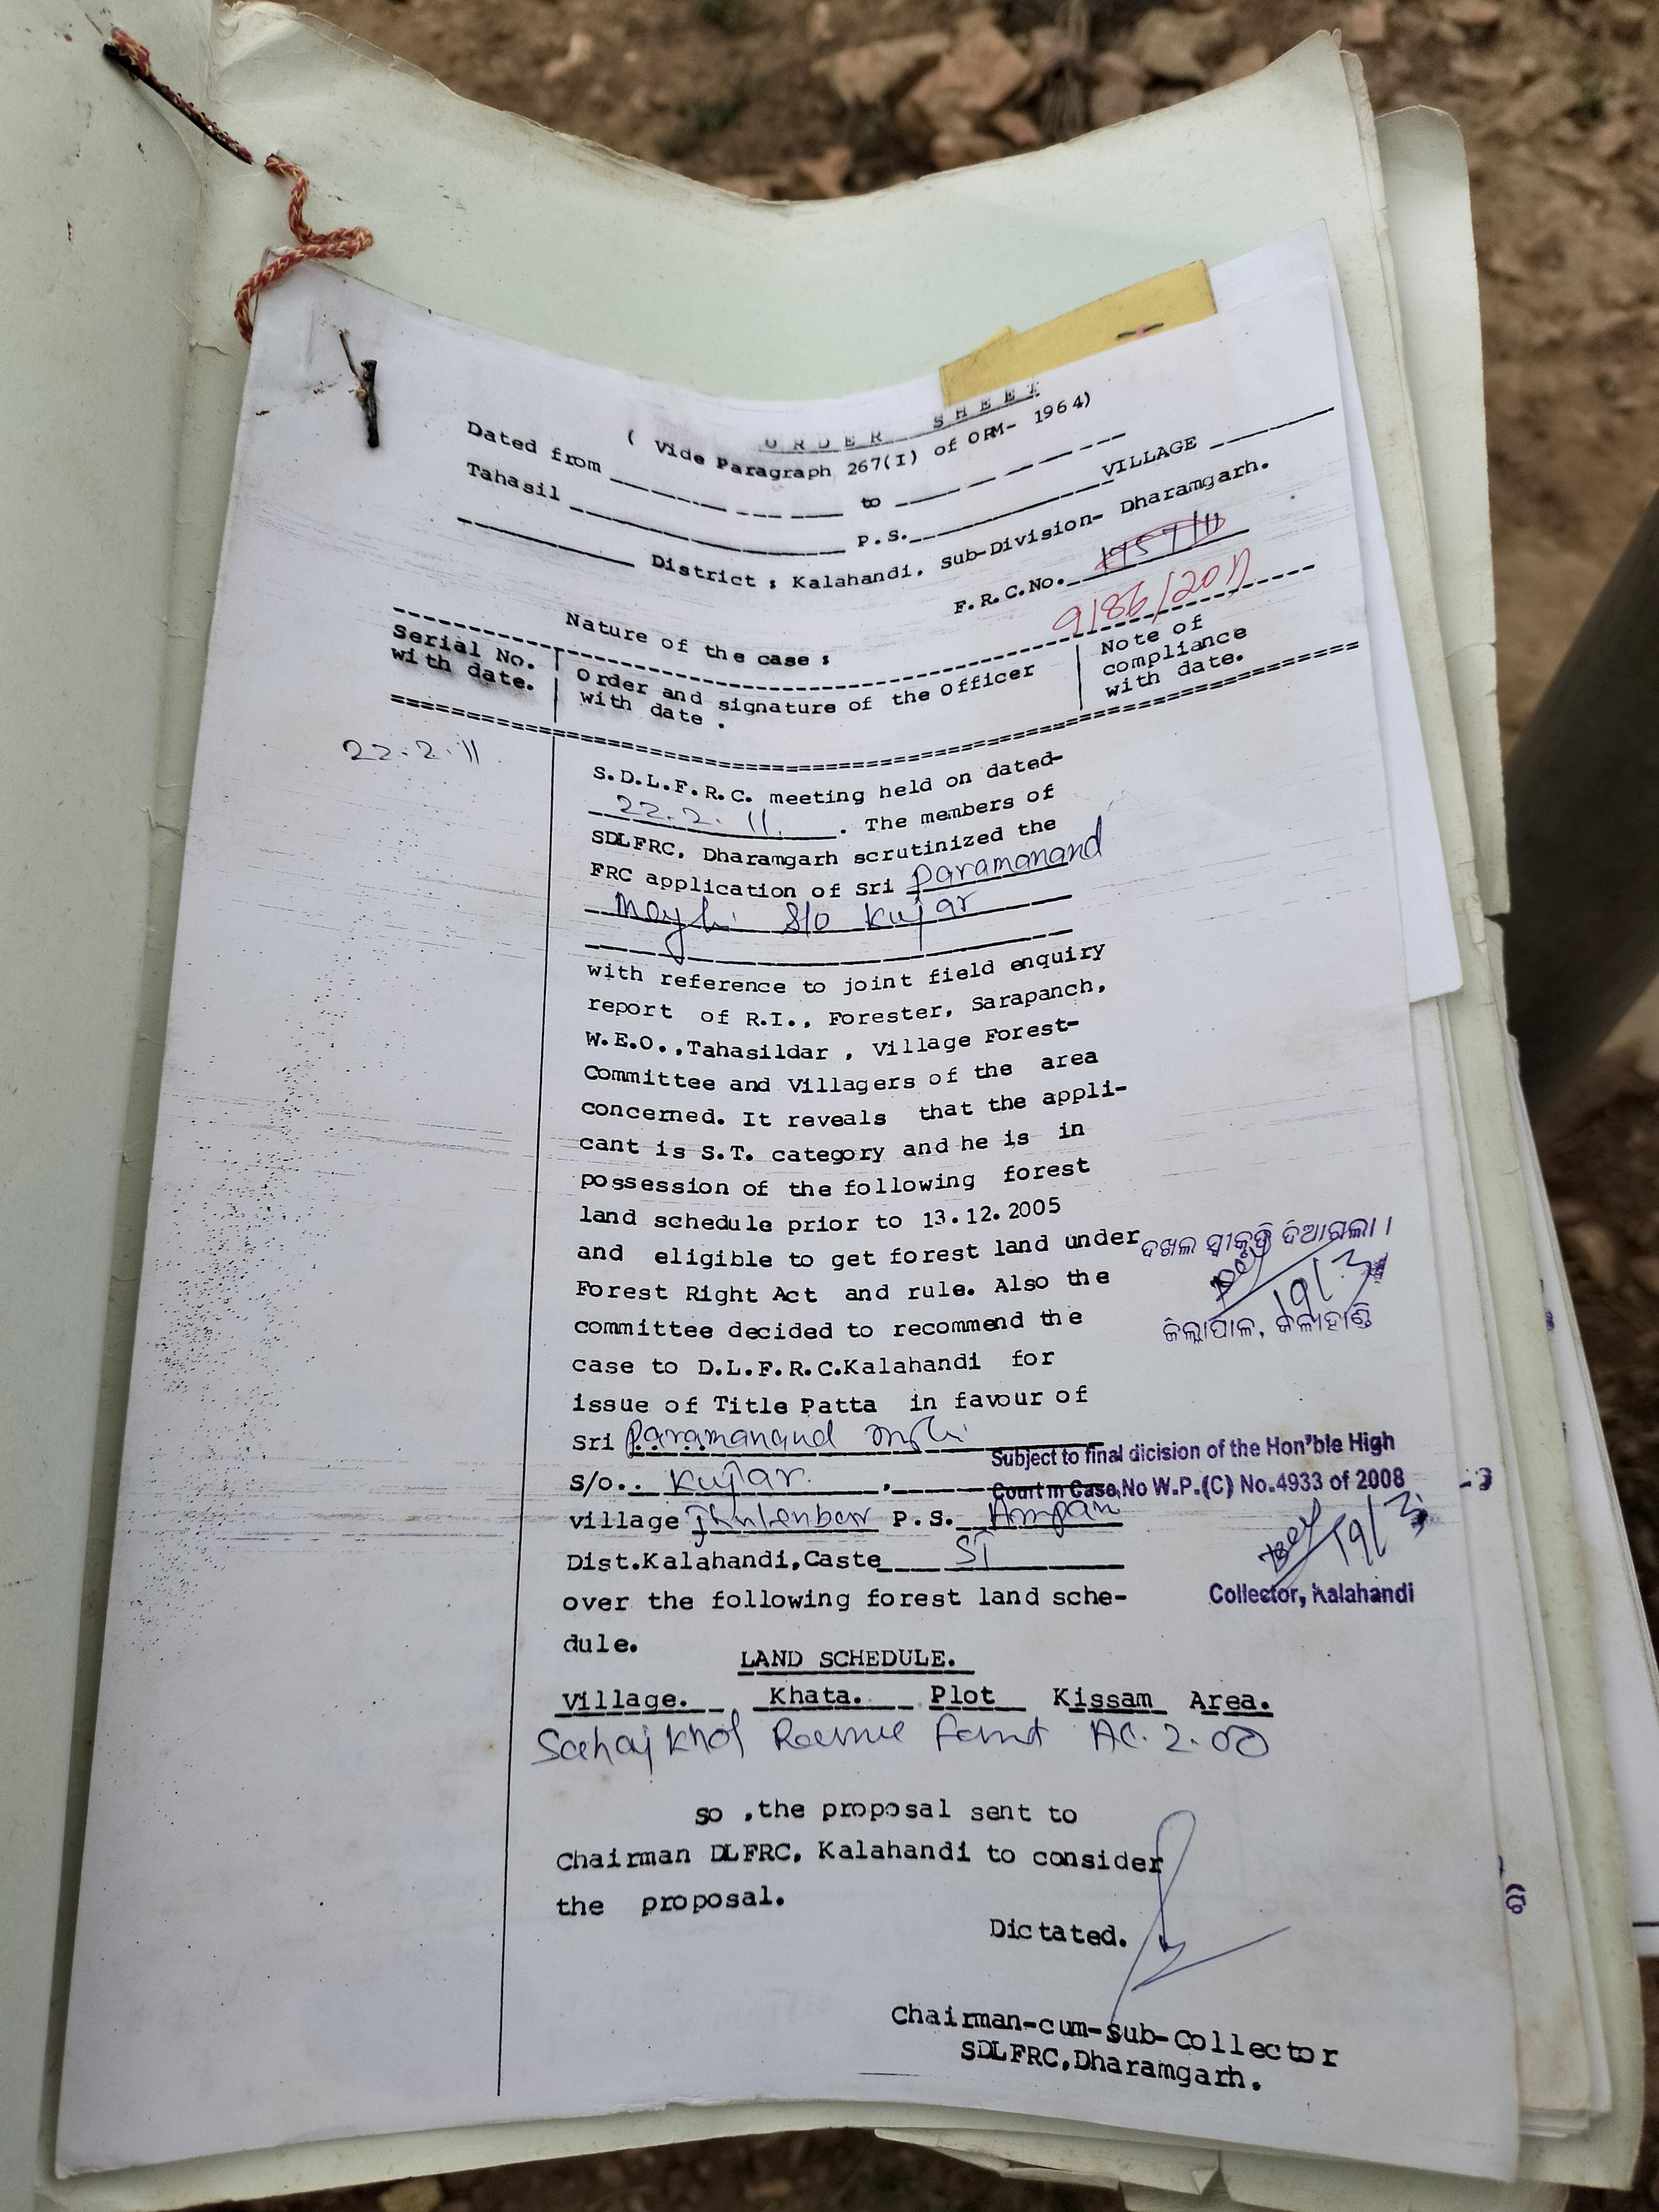 ORDER SHEET
( Vide Paragraph 267(I) of ORM- 1964)
Dated from to
Tahasil P.S. VILLAGE
District : Kalahandi. Sub-Division- Dharamgarh.
F.R.C.No. 1957/11
9186/2011
Nature of the case :
Serial No. with date.
Order and signature of the Officer with date .
Note of compliance with date.
22.2.11
S.D.L.F.R.C. meeting held on dated-
22.2.11. The members of
SDLFRC, Dharamgarh scrutinized the
FRC application of Sri Paramanand
S/o Kujar
with reference to joint field enquiry
report of R.I., Forester, Sarapanch,
W.E.O.,Tahasildar , Village Forest-
Committee and Villagers of the area
concerned. It reveals that the appli-
cant is S.T. category and he is in
possession of the following forest
land schedule prior to 13.12.2005
and eligible to get forest land under
Forest Right Act and rule. Also the
committee decided to recommend the
case to D.L.F.R.C.Kalahandi for
issue of Title Patta in favour of
Sri Paramanand
S/o.. Kujar. ,
village P.S. Ampani
Dist.Kalahandi,Caste ST
over the following forest land sche-
dule.
ଦଖଲ ସ୍ୱୀକୃତି ଦିଆଗଲା ।
19/3
ଜିଲ୍ଲାପାଳ, କଳାହାଣ୍ଡି
Subject to final dicision of the Hon'ble High
Court in Case No W.P.(C) No.4933 of 2008
19/3
Collector, Kalahandi
LAND SCHEDULE.
Village. Khata. Plot Kissam Area.
Sahajkhol AC. 2.00
so ,the proposal sent to
Chairman DLFRC, Kalahandi to consider
the proposal.
Dictated.
Chairman-cum-Sub-Collector
SDLFRC,Dharamgarh.